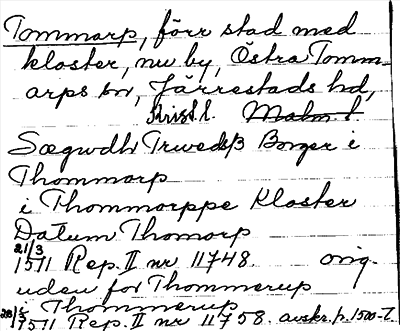 Tommarp, förr stad med
kloster, nu by, Östra Tomm-
arps sn, Järrestads hd,
Krist. l. Malm. l
Sægwdh Trwedsß Borger i
Thommarp
i Thommorppe Kloster
Datum Thomorp
21/3 1511 Rep. II nr 11748. orig.
uden for Thommerup
Thommerup
28/5 1511 Rep. II nr 11758. avskr. p. 1500-t.